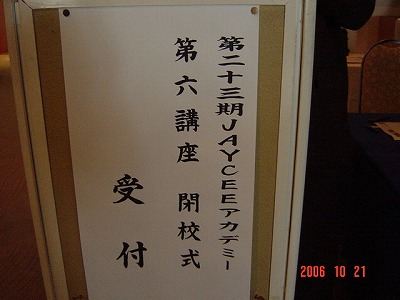 第二十三期JAYCEEアカデミー
第六講座 閉校式
受付
2006 10 21